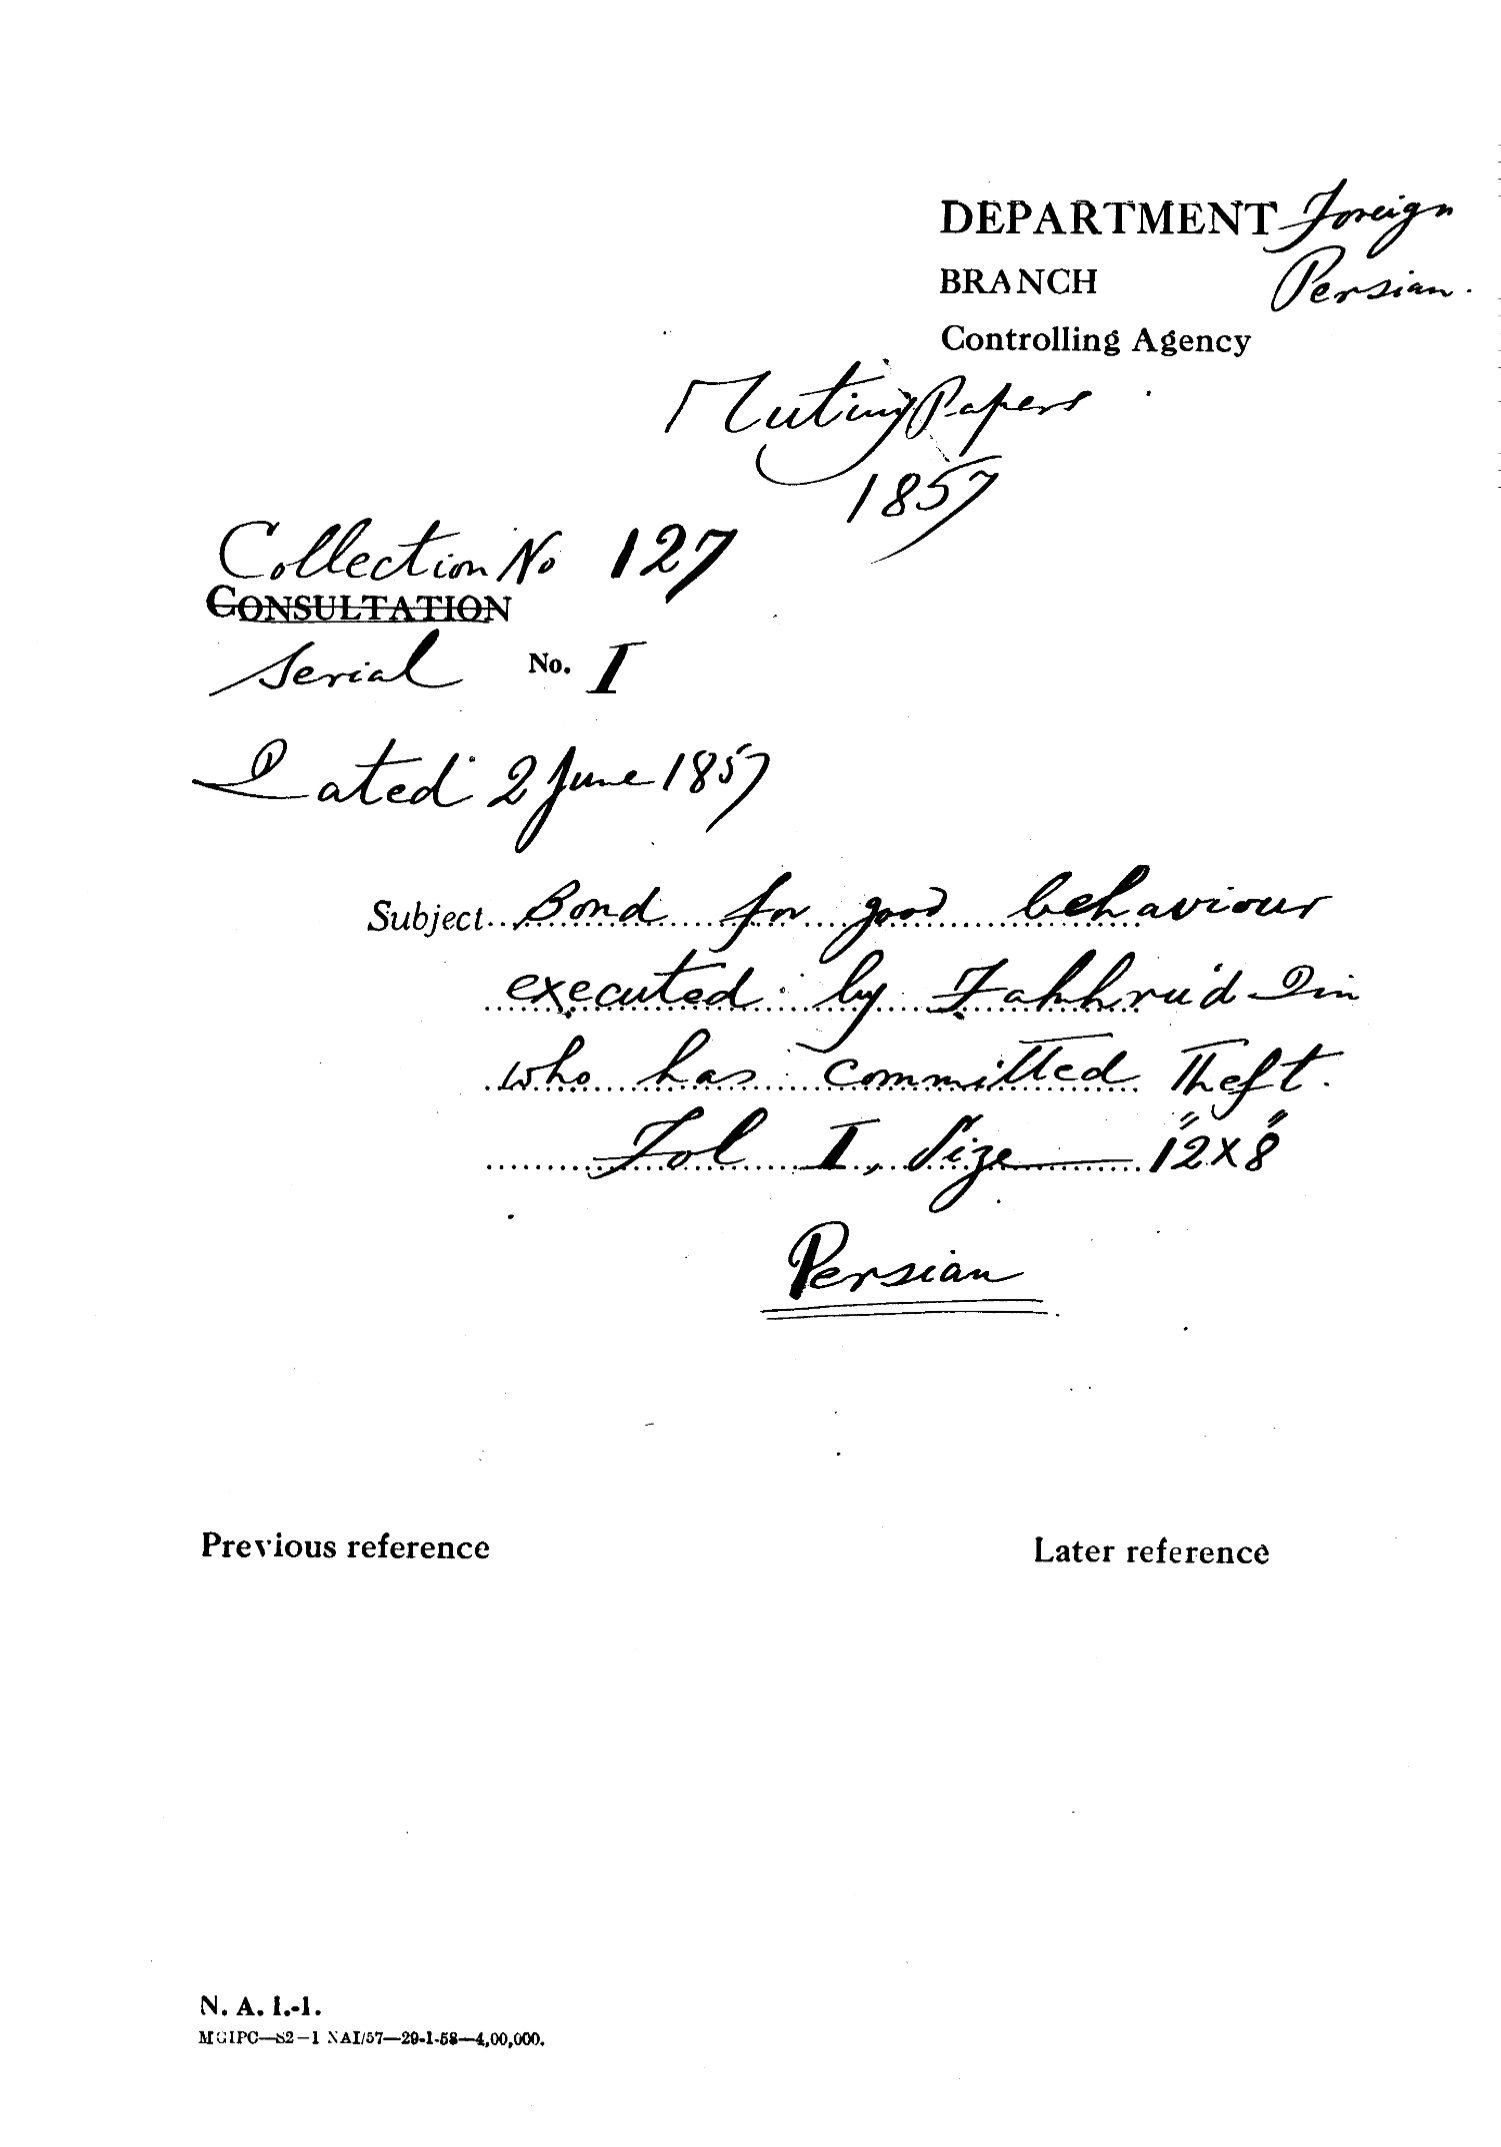 DEPARTMENT Foreign
BRANCH Persian.
Controlling Agency
Mutiny Papers
1857
Collection No 127
CONSULTATION
Serial No. I
Dated 2 June 1857
Subject Bond for good behaviour
executed by Fakhru'd-Din
who has committed Theft.
Fol I, Size — 12"x8"
Persian
Previous reference
Later reference
N. A. I.-1.
MGIPC—S2—1 NAI/57—29-1-58—4,00,000.